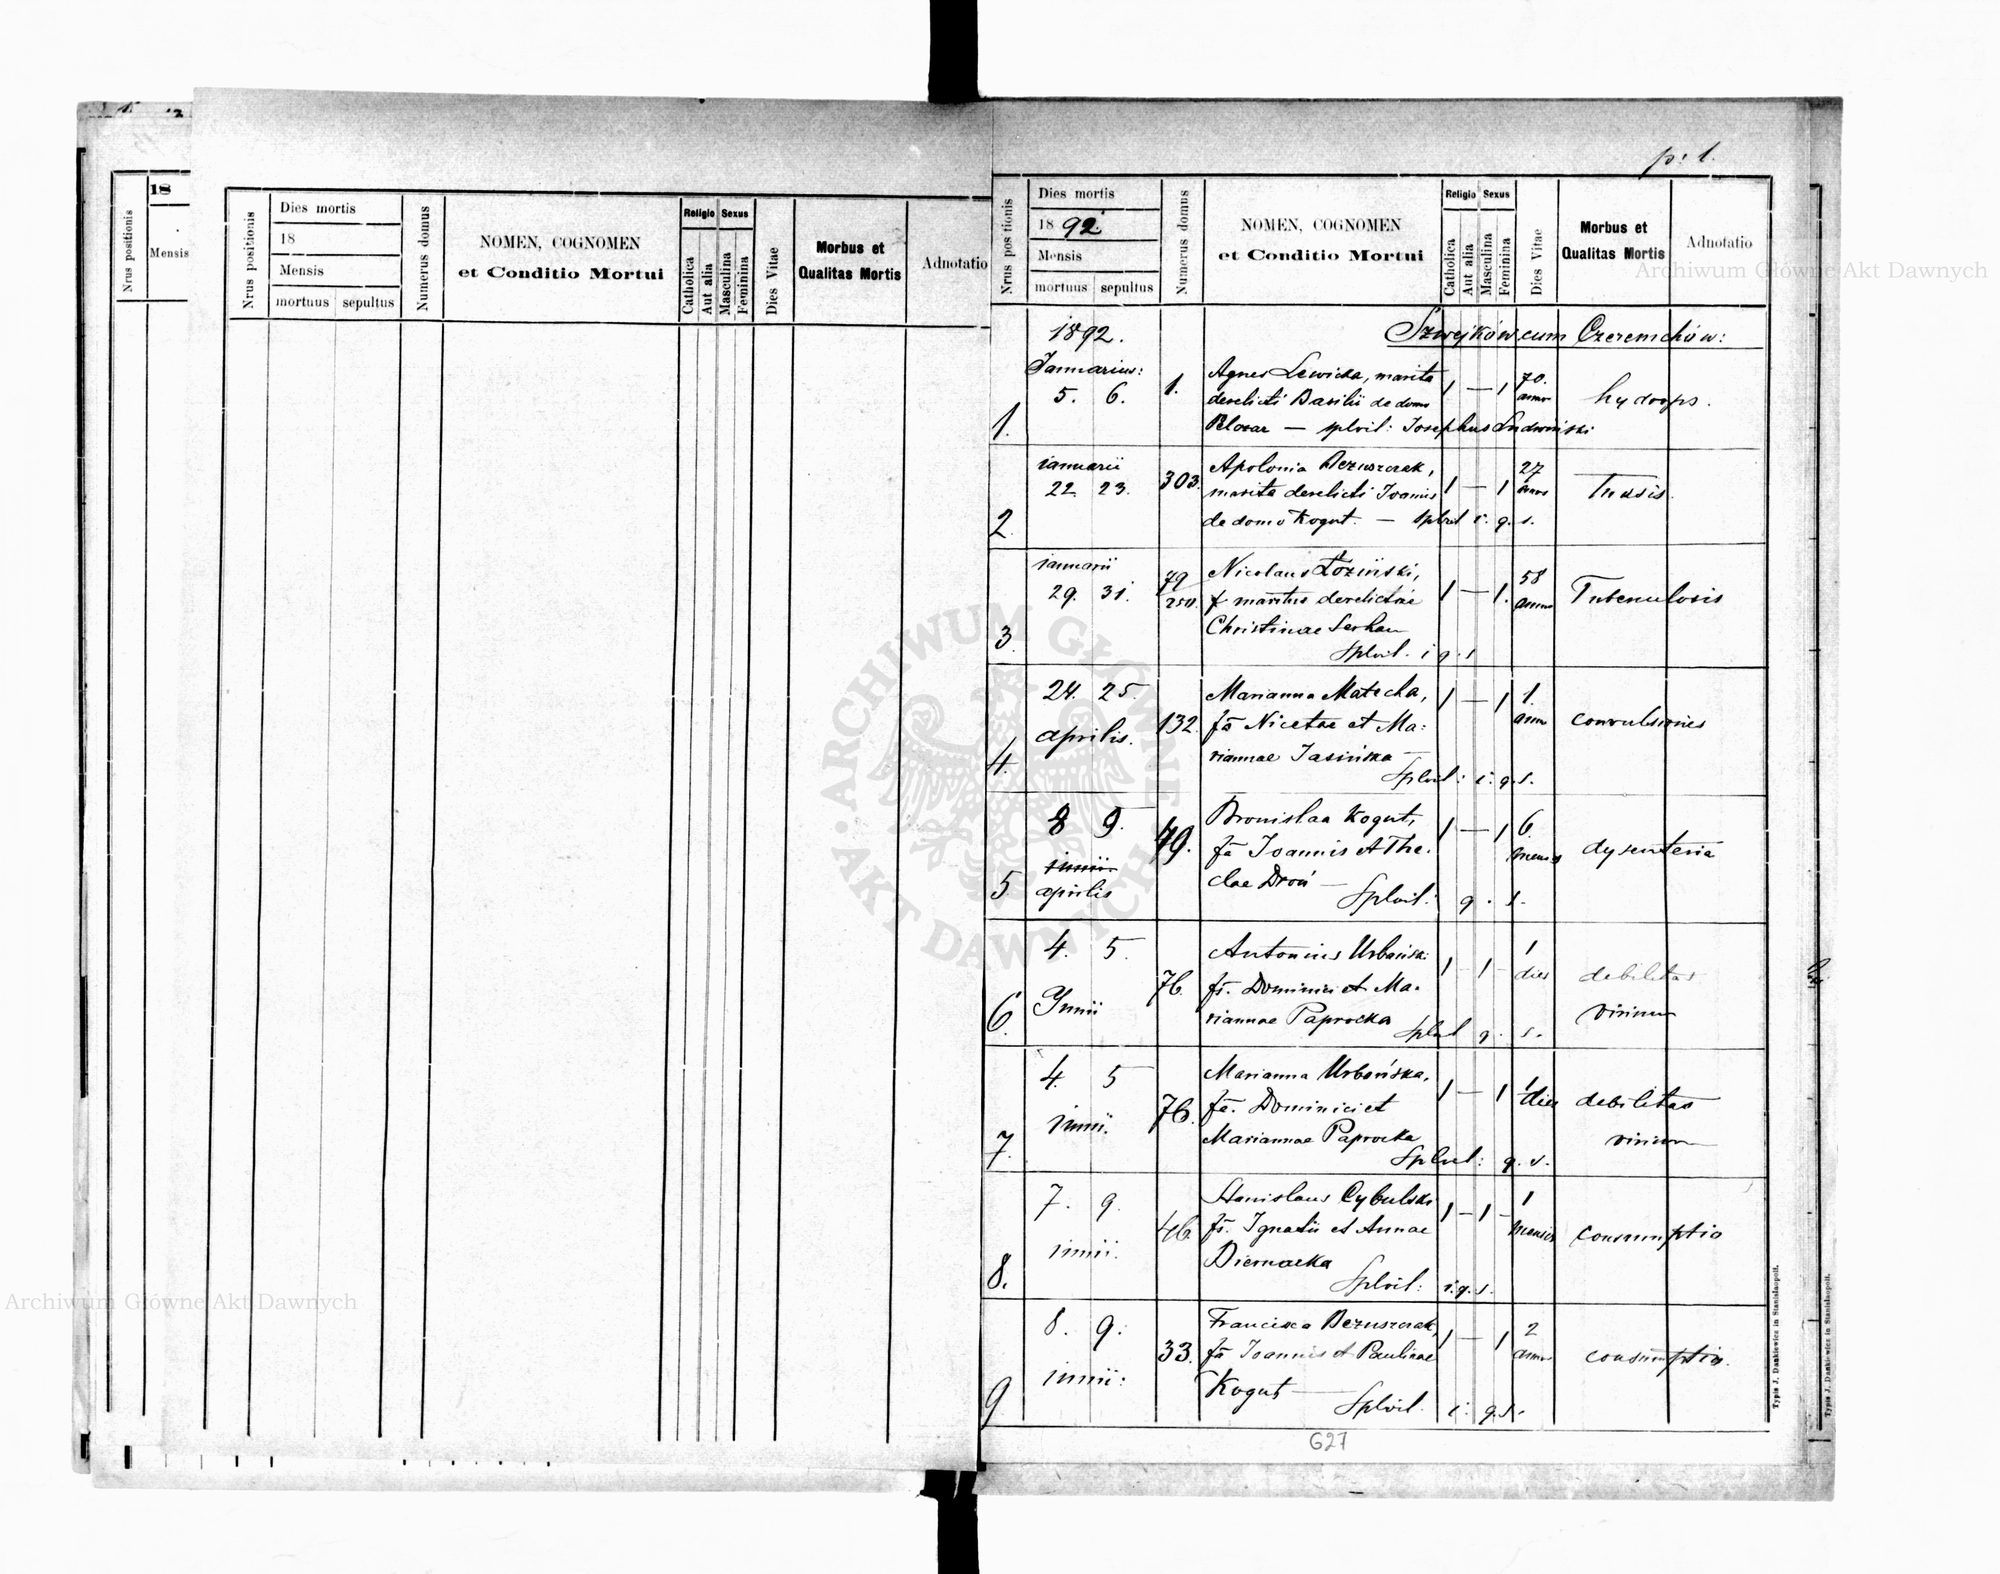 p. 1.
18
Nrus positionis
Mensis
Nrus positionis
Dies mortis
18
Mensis
mortuus sepultus
Numerus domus
NOMEN, COGNOMEN
et Conditio Mortui
Religio Sexus
Catholica
Aut alia
Masculina
Feminina
Dies Vitae
Morbus et
Qualitas Mortis
Adnotatio
Nrus positionis
Dies mortis
1892.
Mensis
mortuus sepultus
Numerus domus
NOMEN, COGNOMEN
et Conditio Mortui
Religio Sexus
Catholica
Aut alia
Masculina
Feminina
Dies Vitae
Morbus et
Qualitas Mortis
Adnotatio
Archiwum Główne Akt Dawnych
1892. Szwejków cum Czeremchów:
Januarius:
1. 5. 6. 1. Agnes Lewicka, marita 1 — 1 70. annor hydrops.
derelicti Basilii de domo
— splvit: Josephus Ludwiński
januarii
2 22 23. 303. Apolonia Bezuszczak, 1 — 1 27 annor Tussis.
marita derelicti Joannis
de domo Kogut. — splvit i. q. s.
januarii
3. 29. 31. 79 Nicolaus Łoziński, 1 — 1. 58 annor Tuberculosis
maritus derelictae
Christinae
splvit. i q. s
4. 24. 25. 132. Marianna Matecka, 1 — 1 1. anni convulsiones
aprilis. fa Nicetae et Ma:
riannae Jasińska —
splvit: i. q. s.
5 8 9. 49. Bronislaa Kogut, 1 — 1 6. menses dysenteria
junii fa Joannis et The:
aprilis clae Droń —
Splvit: q. s.
6. 4. 5. 76. Antonius Urbański 1 - 1 - 1 dies debilitas
Junii fs. Dominici et Ma: virium
riannae Paprocka
splvit q. s.
7. 4. 5 76. Marianna Urbańska, 1 — 1 1 dies debilitas
junii. fa. Dominici et virium
Mariannae Paprocka
Splvit: q. s.
8. 7. 9. 46 Stanislaus Cybulski 1 - 1 - 1 mensis consumptio
junii. fs. Ignatii et Annae
Biernacka
Splvit: i. q. s.
9 8. 9. 33. Francisca Bezuszczak, 1 — 1 2 annor consumptio.
junii: fa Joannis et Paulinae
Kogut —
Splvit. i. q. s.
627
Typis J. Dankiewicz in Stanislaopoli.
Typis J. Dankiewicz in Stanislaopoli.
ARCHIWUM GŁÓWNE
AKT DAWNYCH
Archiwum Główne Akt Dawnych